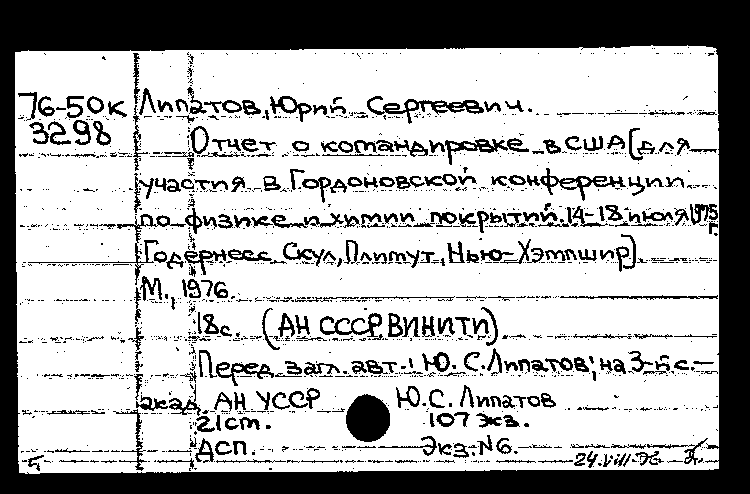 76-50к Липатов, Юрий Сергеевич.
3298 Отчет о командировке в США [для
участия в Гордоновской конференции
по физике и химии покрытий 14-18 июля 1975 г.
Годернесс Скул, Плимут, Нью-Хэмпшир].
М., 1976.
18с. (АН СССР. ВИНИТИ).
Перед загл. авт.: Ю. С. Липатов; на 3-й с. –
акад. АН УССР Ю.С. Липатов
21см. 107 экз.
ДСП. Экз. N6.
24.VIII.76